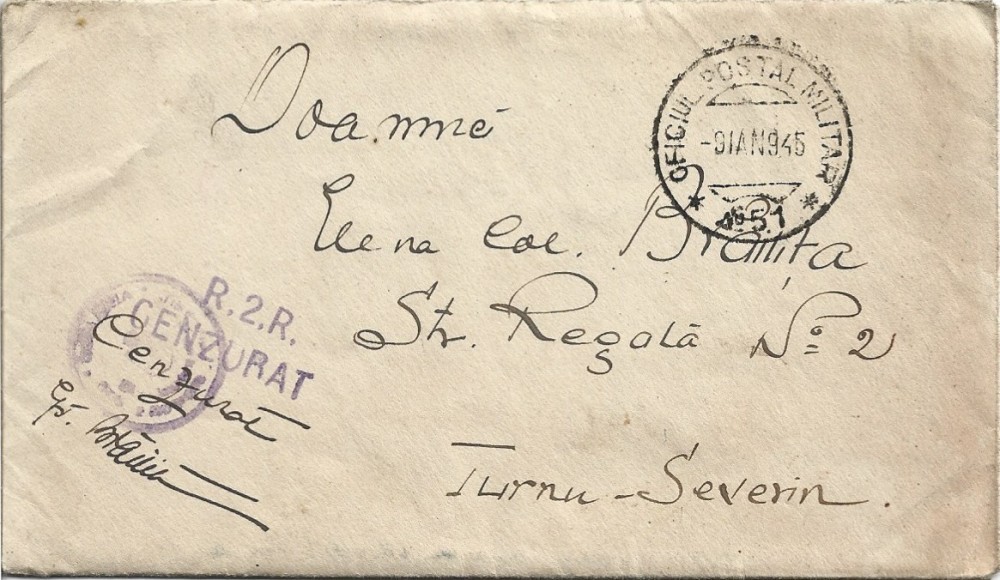 OFICIUL POSTAL MILITAR
-9IAN945
* 451 *
Doamnei
Elena Col. Brăilița
Str. Regală No 2
Turnu-Severin.
R.2.R.
CENZURAT
Cenzurat